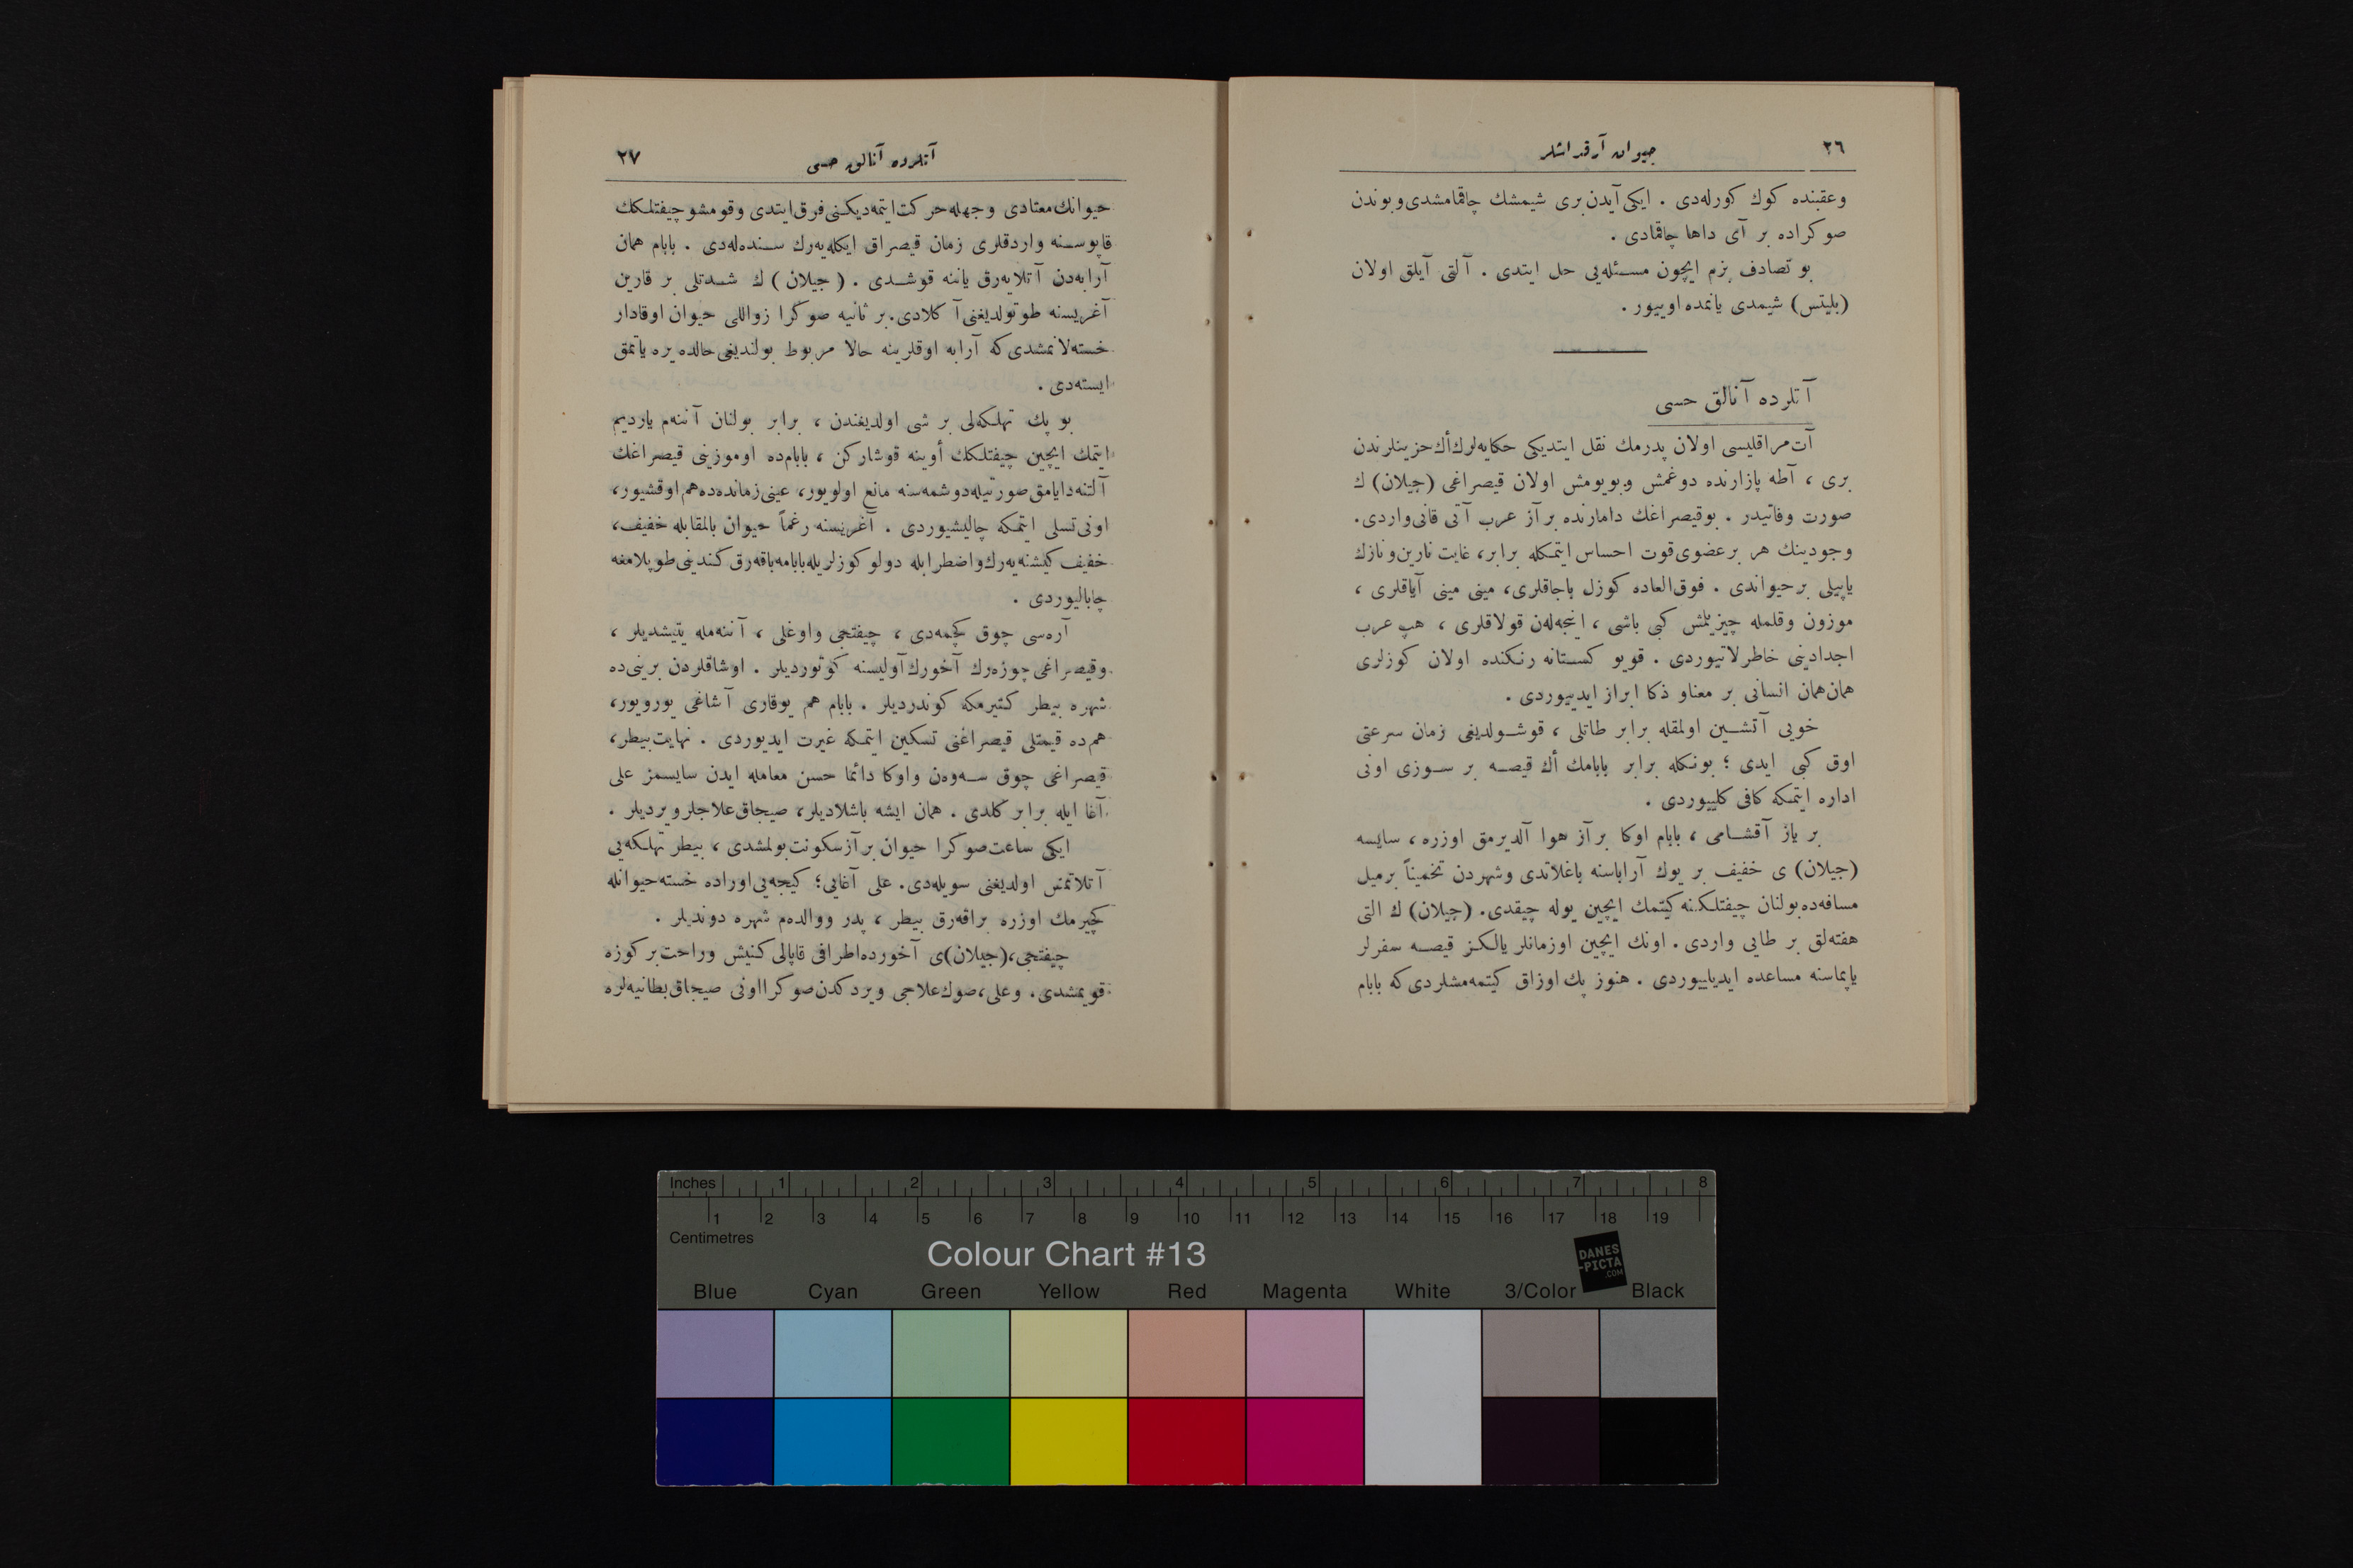 ٢٦
حیوان آرقداشلر
وعقبنده كوك كورله‌دی . ایکی آیدن بری شیمشك چاقمامشدی و بوندن
صوکراده بر آی داها چاقمادی .
بو تصادف بزم ایچون مسئله‌یی حل ایتدی . آلتی آیلق اولان
(بلیتس) شیمدی یانمده اویییور .
آتلرده آنالق حسی
آت مراقلیسی اولان پدرمك نقل ایتدیکی حکایه‌لرك أك حزینلرندن
بری ، آطه پازارنده دوغمش و بویومش اولان قیصراغی (جیلان) ك
صورت وفاتیدر . بو قیصراغك دامارنده بر آز عرب آتی قانی واردی.
وجودینك هر بر عضوی قوت احساس ایتمکله برابر، غایت نارین و نازك
یاپیلی بر حیواندی . فوق‌العاده كوزل باجاقلری، مینی مینی آیاقلری ،
موزون وقلمله چیزیلمش كبی باشی ، اینجه‌لەن قولاقلری ، هپ عرب
اجدادینی خاطرلاتیوردی . قویو كستانه رنکنده اولان كوزلری
همان همان انسانی بر معنا و ذكا ابراز ایدییوردی .
خویی آتشین اولمقله برابر طاتلی ، قوشولدیغی زمان سرعتی
اوق كبی ایدی ؛ بونکله برابر بابامك أك قیصه بر سوزی اونی
اداره ایتمکه كافی كلییوردی .
بر یاز آقشامی ، بابام اوكا بر آز هوا آلدیرمق اوزره ، سایسه
(جیلان) ی خفیف بر یوك آراباسنه باغلاتدی وشهردن تخمیناً بر میل
مسافه‌ده بولنان چیفتلکنه كیتمك ایچین یوله چیقدی. (جیلان) ك التی
هفته‌لق بر طایی واردی . اونك ایچین اوزمانلر یالکز قیصه سفرلر
یاپماسنه مساعده ایدیلییوردی . هنوز پك اوزاق كیتمه‌مشلردی كه بابام
آتلرده آنالق حسی
٢٧
حیوانك معتادی وجهله حركت ایتمه‌دیکنی فرق ایتدی وقومشو چیفتلکك
قاپوسنه واردقلری زمان قیصراق ایکله‌یه‌رك سنده‌له‌دی . بابام همان
آرابه‌دن آتلایه‌رق یاننه قوشدی . (جیلان) ك شدتلی بر قارین
آغریسنه طوتولدیغنی آكلادی. بر ثانیه صوكرا زواللی حیوان اوقادار
خسته‌لانمشدی كه آرابه اوقلرینه حالا مربوط بولندیغی حالده یره یاتمق
ایسته‌دی .
بو پك تهلكه‌لی بر شی اولدیغندن ، برابر بولنان آننه‌م یاردیم
ایتمك ایچین چیفتلکك أوینه قوشاركن ، بابام‌ده اوموزینی قیصراغك
آلتنه دایامق صورتیله دوشمه‌سنه مانع اولویور، عینی زمانده‌ده هم اوقشیور،
اونی تسلی ایتمکه چالیشیوردی . آغریسنه رغماً حیوان بالمقابله خفیف،
خفیف كیشنه‌یه‌رك واضطرابله دولو كوزلریله بابامه باقه‌رق كندینی طوپلامغه
چابالیوردی .
آره‌سی چوق كچمه‌دی ، چیفتجی واوغلی ، آننه‌مله یتیشدیلر ،
وقیصراغی چوزه‌رك آخورك آولیسنه كوتوردیلر . اوشاقلردن برینی‌ده
شهره بیطر كتیرمکه كوندردیلر . بابام هم یوقاری آشاغی یورویور،
هم‌ده قیمتلی قیصراغنی تسکین ایتمکه غیرت ایدیوردی . نهایت بیطر،
قیصراغی چوق سەوەن واوكا دائما حسن معامله ایدن سایسمز علی
آغا ایله برابر كلدی . همان ایشه باشلادیلر، صیجاق علاجلر ویردیلر .
ایکی ساعت صوكرا حیوان بر آز سكونت بولمشدی ، بیطر تهلکه‌یی
آتلاتمش اولدیغنی سویله‌دی. علی آغایی؛ كیجه‌یی اوراده خسته حیوانله
كچیرمك اوزره براقه‌رق بیطر ، پدر ووالده‌م شهره دوندیلر .
چیفتجی، (جیلان)ی آخورده اطرافی قاپالی كنیش وراحت بر كوزه
قویمشدی. وعلی، صوك علاجی ویردكدن صوكرا اونی صیجاق بطانیه‌لره
Inches 1 2 3 4 5 6 7 8
1 2 3 4 5 6 7 8 9 10 11 12 13 14 15 16 17 18 19
Centimetres
Colour Chart #13
DANES
-PICTA
.COM
Blue Cyan Green Yellow Red Magenta White 3/Color Black